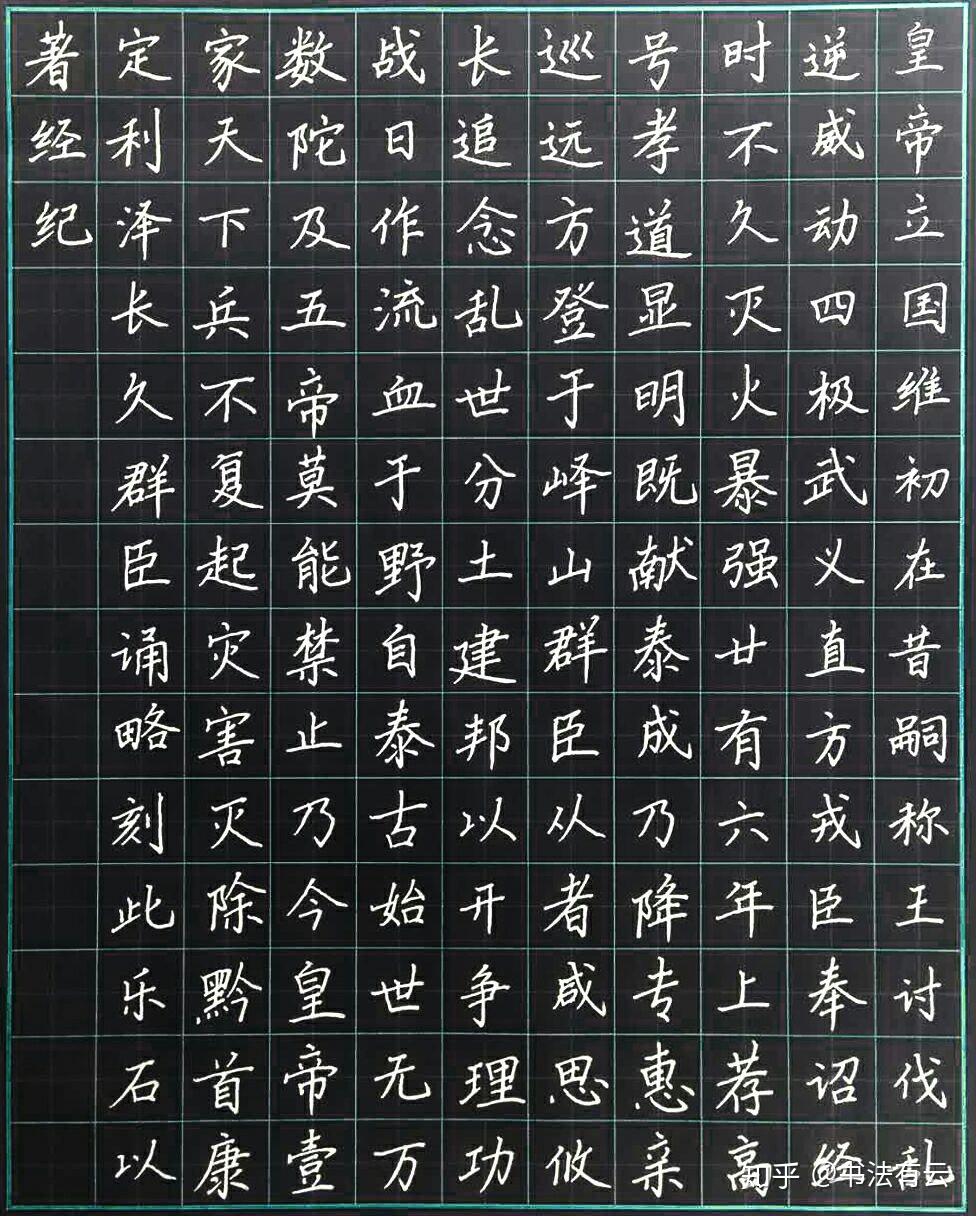 皇帝立国维初在昔嗣称王讨伐乱
逆威动四极武义直方戎臣奉诏经
时不久灭火暴强廿有六年上荐高
号孝道显明既献泰成乃降专惠亲
巡远方登于峄山群臣从者咸思攸
长追念乱世分土建邦以开争理功
战日作流血于野自泰古始世无万
数陀及五帝莫能禁止乃今皇帝壹
家天下兵不复起灾害灭除黔首康
定利泽长久群臣诵略刻此乐石以
著经纪
知乎 @书法有云